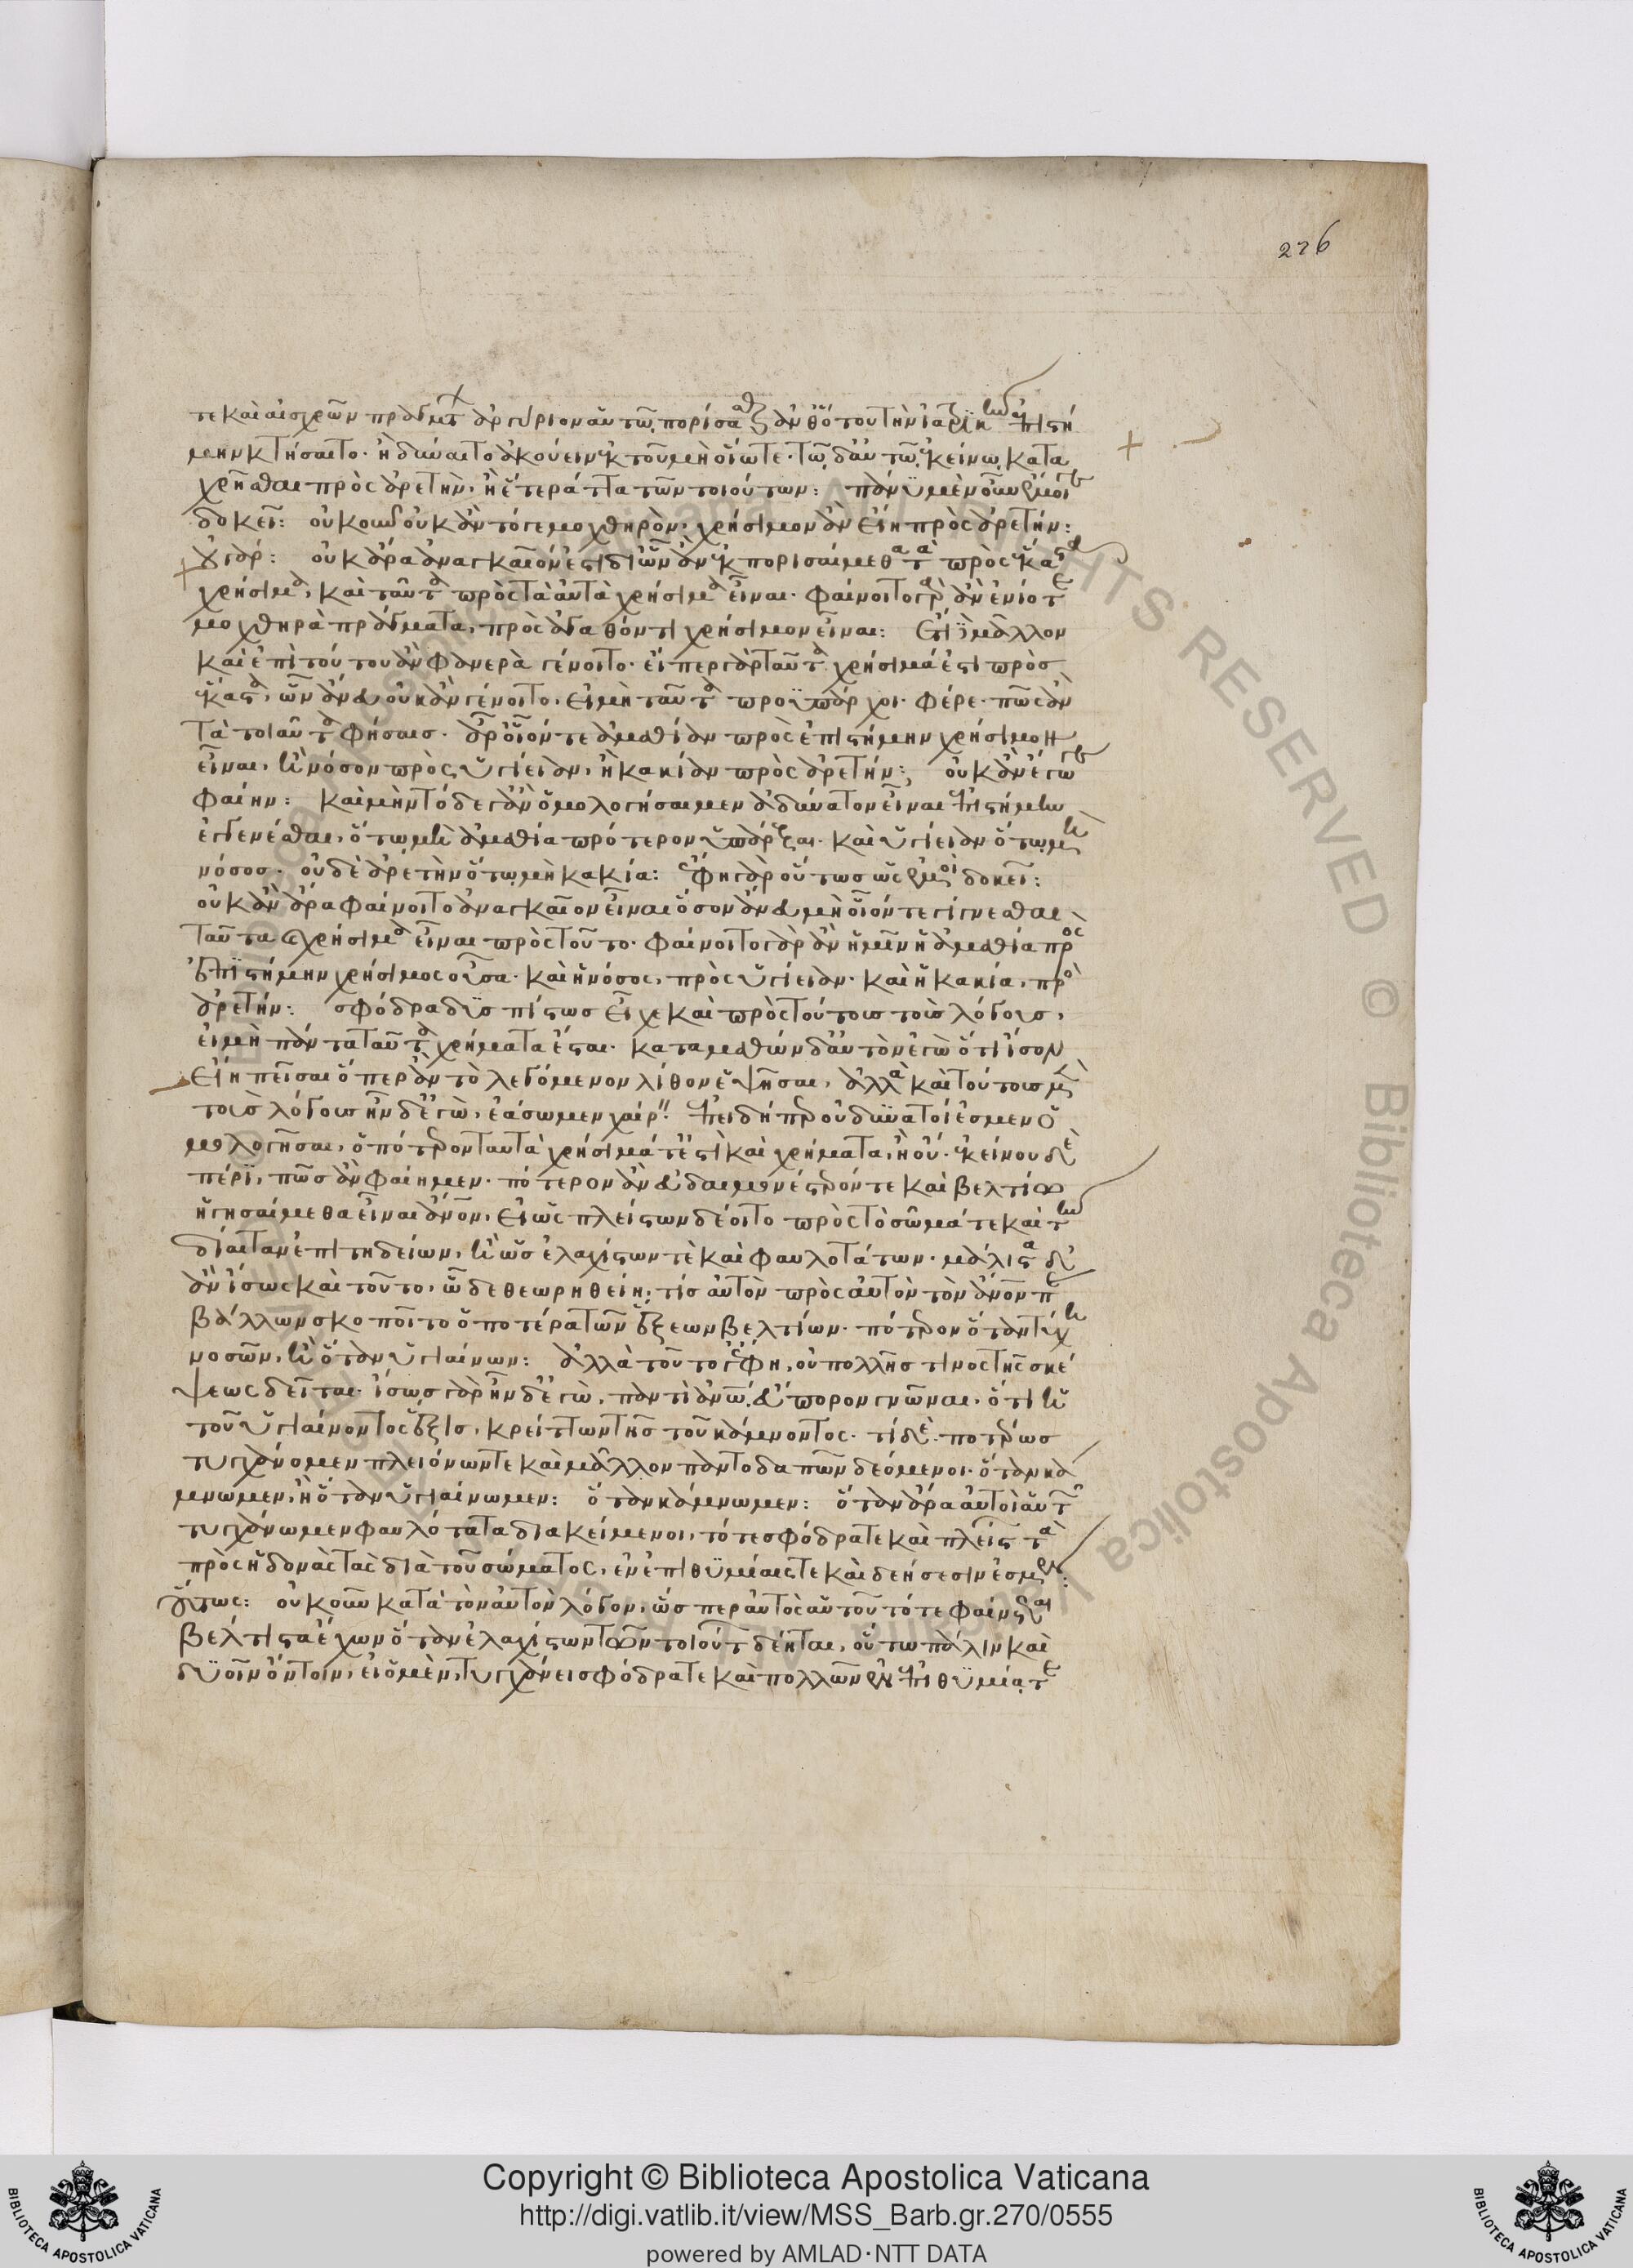 276
τε καὶ αἰσχρῶν πραγμάτων ἀργύριον αὐτῷ πορίσασθαι ἀνθ' ὅτου τὴν ἰατρικὴν ἐπιστή
μην κτήσαιτο. ἢ δύναιτο ἀκούειν ἐκ τοῦ μὴ οἷός τε. τῷ δ' αὐτῷ ἐκείνῳ κατα
χρῆσθαι πρὸς ἀρετὴν, ἢ ἕτερ' ἄττα τῶν τοιούτων: πάνυ μὲν οὖν ἔμοιγε
δοκεῖ: οὐκοῦν οὐκ ἂν τό γε μοχθηρὸν, χρήσιμον ἂν εἴη πρὸς ἀρετήν:
οὐ γάρ: οὐκ ἄρα ἀναγκαῖόν ἐστι δι' ὧν ἂν ἐκπορισαίμεθα τὰ πρὸς ἕκαστα
χρήσιμα, καὶ ταῦτα πρὸς τὰ αὐτὰ χρήσιμα εἶναι. φαίνοιτο γὰρ ἂν ἐνίοτε
μοχθηρὰ πράγματα, πρὸς ἀγαθόν τι χρήσιμον εἶναι: ἔτι μᾶλλον
καὶ ἐπὶ τούτου ἂν φανερὰ γένοιτο. εἴπερ γὰρ ταῦτα χρήσιμά ἐστι πρὸς
ἕκαστα, ὧν ἄνευ οὐκ ἂν γένοιτο, εἰ μὴ ταῦτα προϋπάρχοι. φέρε. πῶς ἂν
τὰ τοιαῦτα φήσαις. ἆρ' οἷόν τε ἀμαθίαν πρὸς ἐπιστήμην χρήσιμον
εἶναι, ἢ νόσον πρὸς ὑγίειαν, ἢ κακίαν πρὸς ἀρετήν: οὐκ ἂν ἔγωγε
φαίην: καὶ μὴν τόδε γ' ἂν ὁμολογήσαιμεν ἀδύνατον εἶναι ἐπιστήμην
ἐγγενέσθαι, ὅτῳ μὴ ἀμαθία πρότερον ὑπάρξαι. καὶ ὑγίειαν ὅτῳ μὴ
νόσος. οὐδὲ ἀρετὴν ὅτῳ μὴ κακία: ἔφη γὰρ οὕτως ὥς ἐμοὶ δοκεῖ:
οὐκ ἂν ἄρα φαίνοιτο ἀναγκαῖον εἶναι ὅσων ἄνευ μὴ οἷόν τε γίγνεσθαι
ταῦτα χρήσιμα εἶναι πρὸς τοῦτο. φαίνοιτο γὰρ ἂν ἡμῖν ἡ ἀμαθία πρὸς
ἐπιστήμην χρήσιμος οὖσα. καὶ ἡ νόσος, πρὸς ὑγίειαν. καὶ ἡ κακία, πρὸς
ἀρετήν: σφόδρα δυσπίστως εἶχε καὶ πρὸς τούτους τοὺς λόγους,
εἰ μὴ πάντα ταῦτα χρήματα ἔσται. καταμαθὼν δ' αὐτὸν ἐγὼ ὅτι ἴσον
εἴη πεῖσαι ὅπερ ἂν τὸ λεγόμενον λίθον ἑψῆσαι, ἀλλὰ καὶ τούτους μὲν
τοὺς λόγους ἦν δ' ἐγὼ, ἐάσωμεν χαίρειν ἐπειδήπερ οὐ δυνατοί ἐσμεν ὁ
μολογῆσαι, ὁπότερον ταυτὰ χρήσιμά τέ ἐστι καὶ χρήματα, ἢ οὔ. ἐκείνου δὲ
πέρι, πῶς ἂν φαίημεν. πότερον ἂν εὐδαιμονέστερόν τε καὶ βελτίω
ἡγησαίμεθα εἶναι ἄνθρωπον, εἰ ὡς πλείστων δέοιτο πρὸς τὸ σῶμά τε καὶ τὴν
δίαιταν ἐπιτηδείων, ἢ ὡς ἐλαχίστων τε καὶ φαυλοτάτων. μάλιστα δ'
ἂν ἴσως καὶ τοῦτο, ὧδε θεωρηθείη: τίς αὐτὸν πρὸς αὐτὸν τὸν ἄνθρωπον παρα
βάλλων σκοποῖτο ὁποτέρα τῶν ἕξεων βελτίων. πότερον ὅταν τύχῃ
νοσῶν, ἢ ὅταν ὑγιαίνων: ἀλλὰ τοῦτό γ' ἔφη, οὐ πολλῆς τινος τῆς σκέ
ψεως δεῖται. ἴσως γὰρ ἦν δ' ἐγὼ, παντὶ ἀνθρώπῳ εὔπορον γνῶναι, ὅτι ἡ
τοῦ ὑγιαίνοντος ἕξις, κρείττων τῆς τοῦ κάμνοντος. τί δέ. ποτέρως
τυγχάνομεν πλειόνων τε καὶ μᾶλλον παντοδαπῶν δεόμενοι. ὅταν κά
μνωμεν, ἢ ὅταν ὑγιαίνωμεν: ὅταν κάμνωμεν: ὅταν ἄρα αὐτοὶ αὑτῶν
τυγχάνωμεν φαυλότατα διακείμενοι, τότε σφόδρα τε καὶ πλεῖστα
πρὸς ἡδονὰς τὰς διὰ τοῦ σώματος, ἐν ἐπιθυμίαις τε καὶ δεήσεσιν ἐσμέν:
οὕτως: οὐκοῦν κατὰ τὸν αὐτὸν λόγον, ὥσπερ αὐτὸς αὑτοῦ τότε φαίνεται
βέλτιστα ἔχων ὅταν ἐλαχίστων τῶν τοιούτων δέηται, οὕτω πάλιν καὶ
δυοῖν ὄντοιν, εἰ ὁ μὲν, τυγχάνει σφόδρα τε καὶ πολλῶν ἐν ἐπιθυμίᾳ τε
Copyright © Biblioteca Apostolica Vaticana
http://digi.vatlib.it/view/MSS_Barb.gr.270/0555
powered by AMLAD·NTT DATA